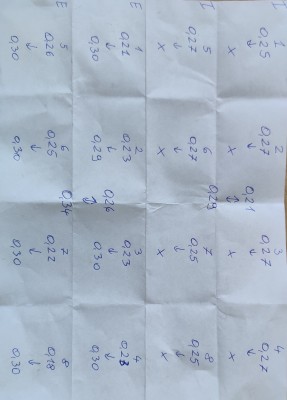 I 1 2 3 4
0,25 0,27 0,21 0,27 0,27
↓ ↓ ↑ ↓ ↓
x x 0,29 x x
I 5 6 7 8
0,27 0,27 0,25 0,25
↓ ↓ ↓ ↓
x x x x
E 1 2 3 4
0,21 0,23 0,23 0,23
↓ ↓ 0,26 ↓ ↓
0,30 0,29 ↑ 0,30 0,30
0,34
E 5 6 7 8
0,26 0,25 0,22 0,18
↓ ↓ ↓ ↓
0,30 0,30 0,30 0,30